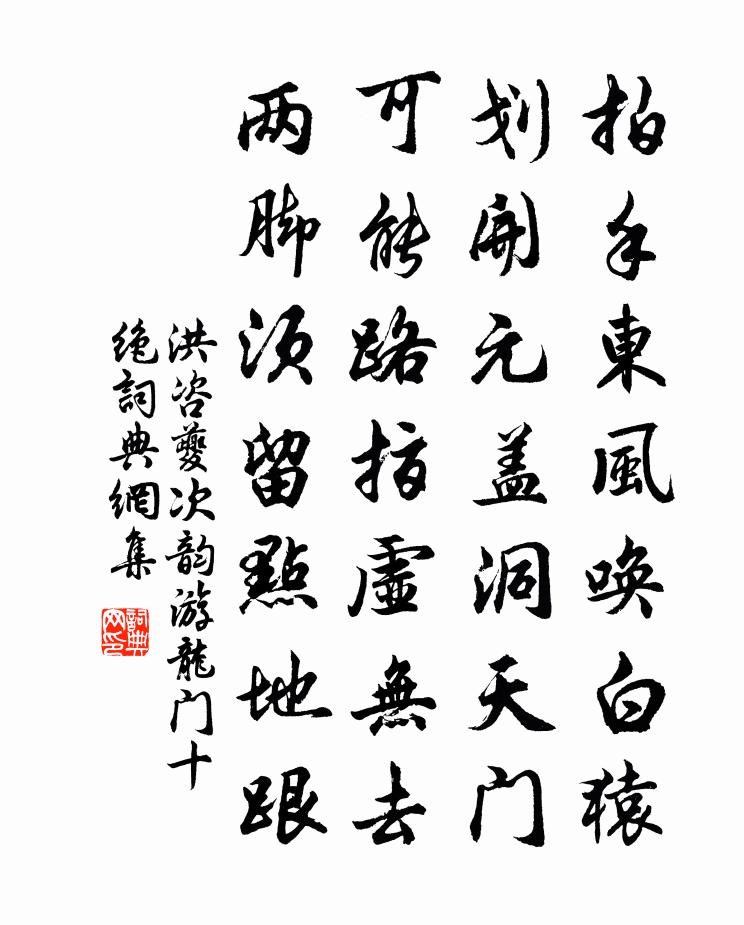 拍手東風唤白猿
划開元盖洞天门
可能路指虛無去
两脚须留點地跟
洪咨夔次韵游龍门十
絶詞典網集
詞典网印